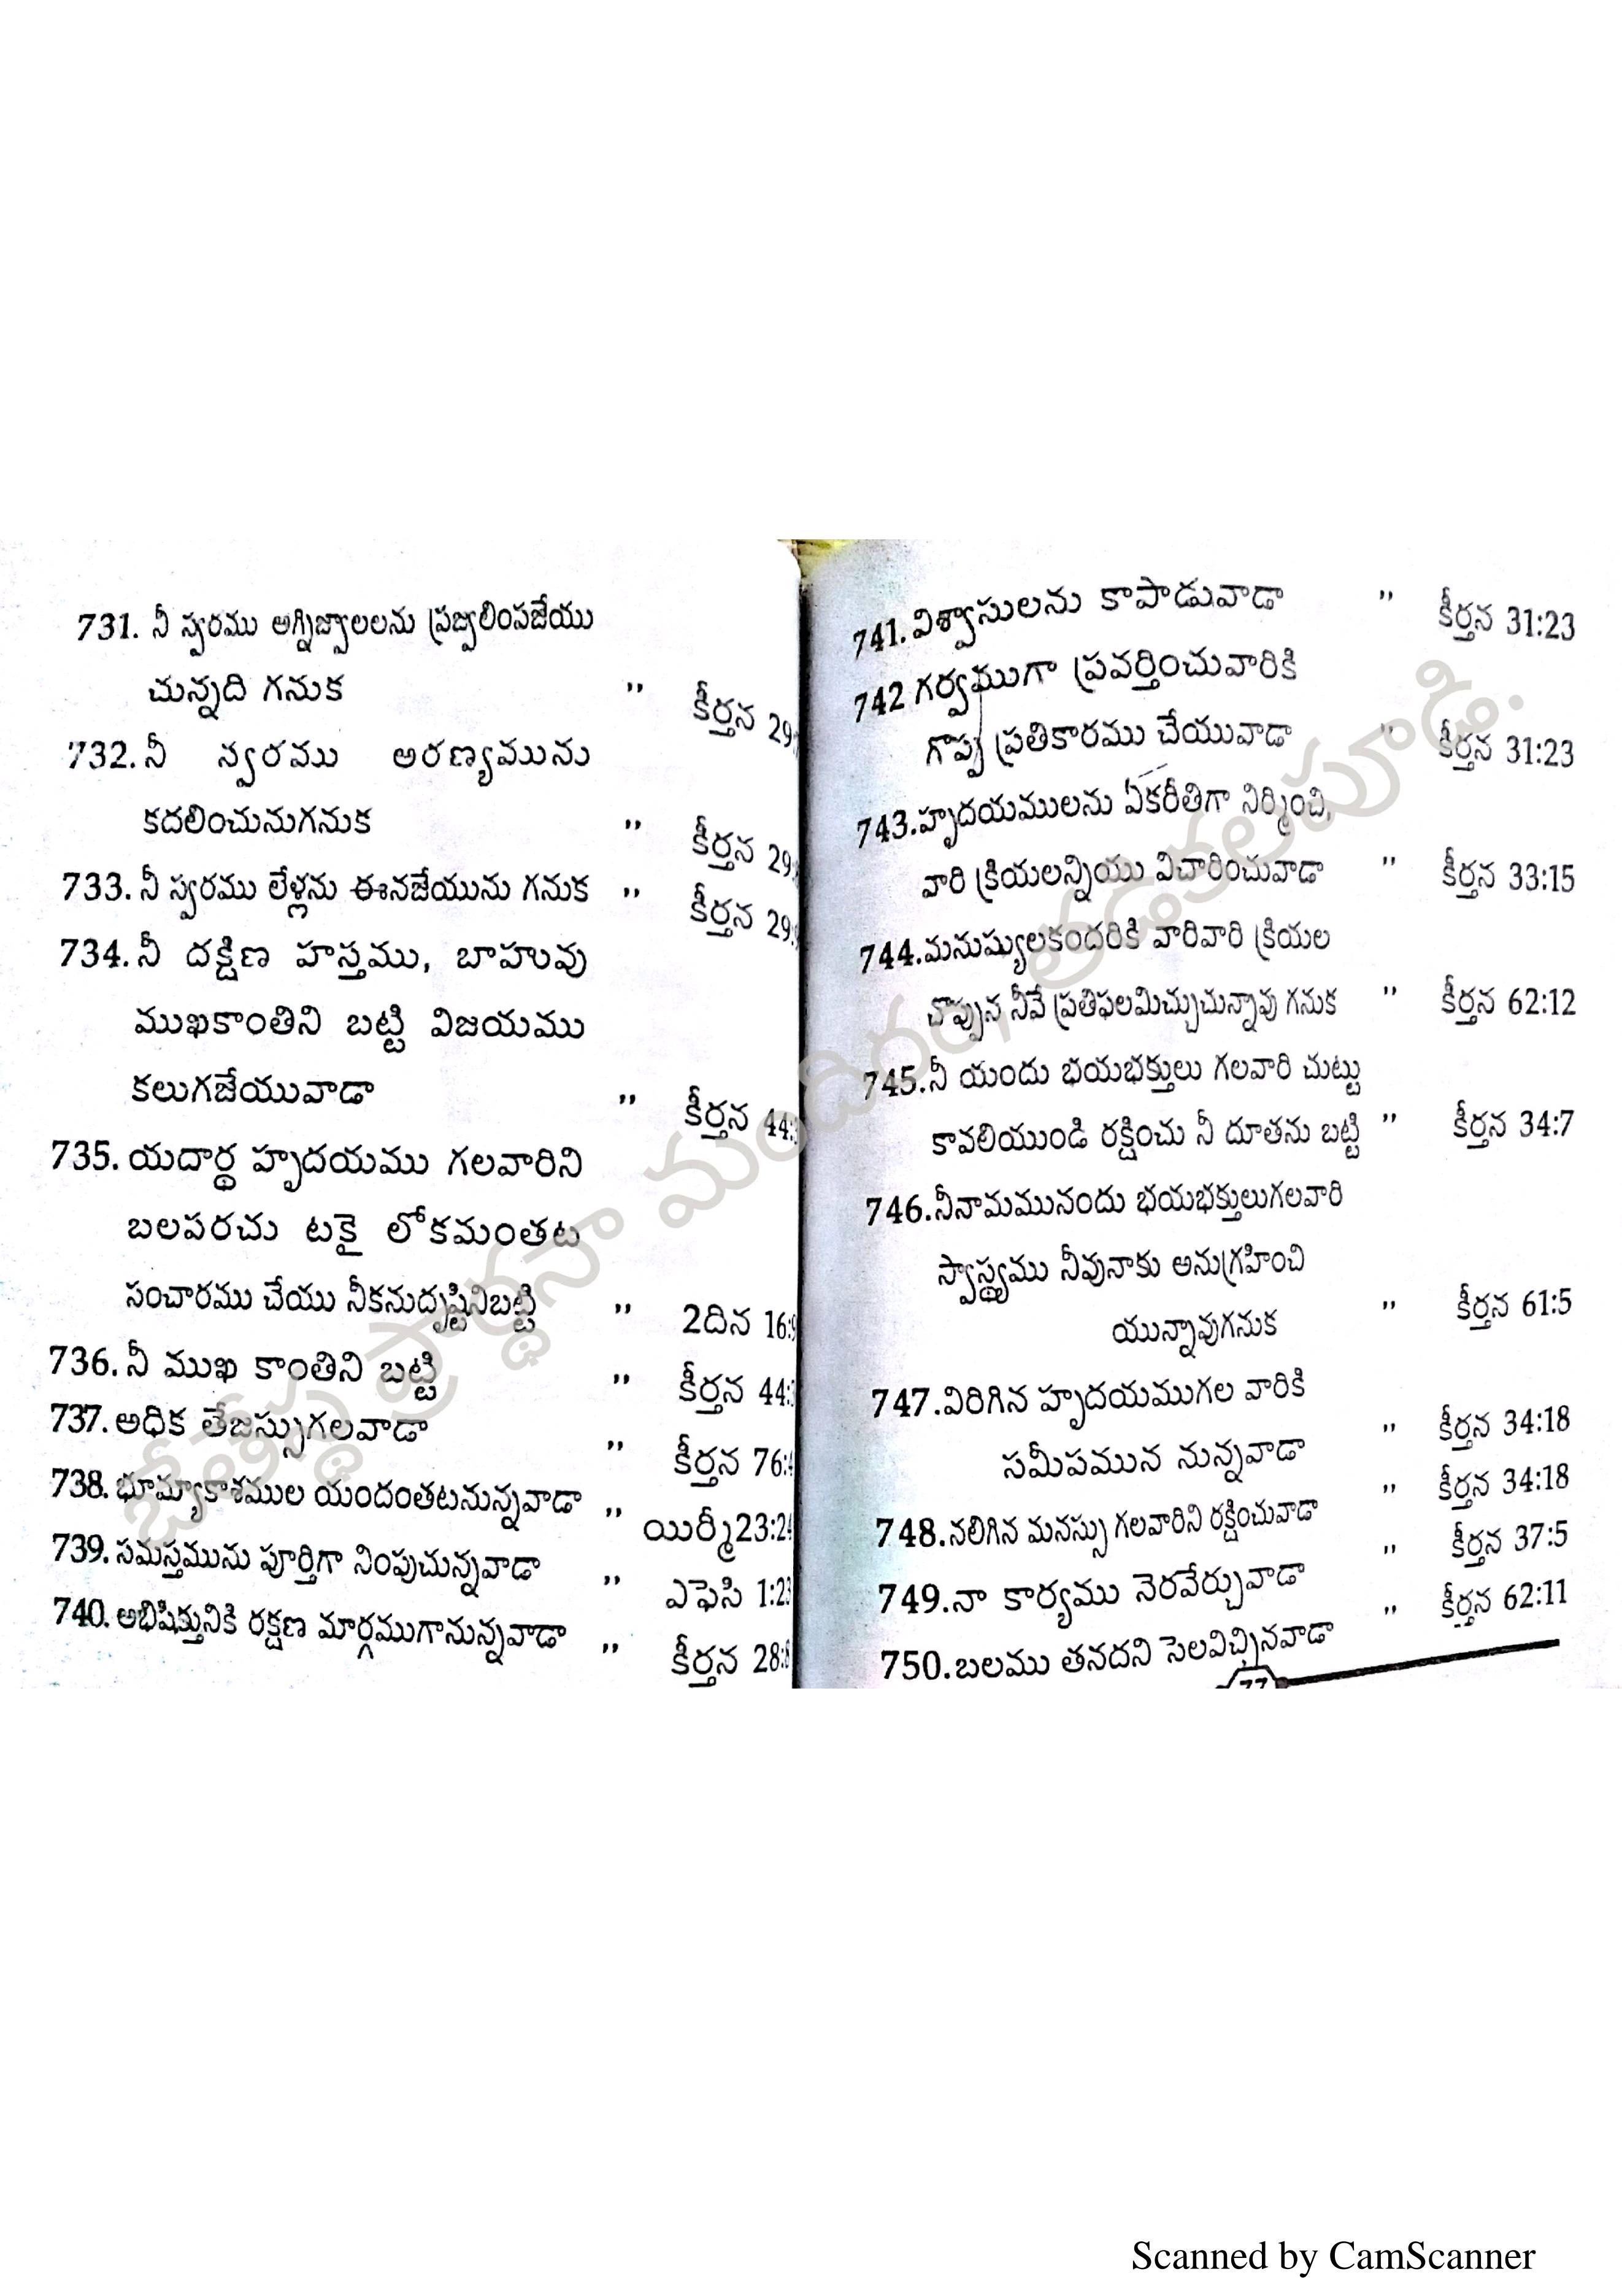 731. నీ స్వరము అగ్నిజ్వాలలను ప్రజ్వలింపజేయు
చున్నది గనుక " కీర్తన 29:
732. నీ స్వరము అరణ్యమును
కదలించునుగనుక " కీర్తన 29:
733. నీ స్వరము లేళ్లను ఈనజేయును గనుక " కీర్తన 29:
734. నీ దక్షిణ హస్తము, బాహువు
ముఖకాంతిని బట్టి విజయము
కలుగజేయువాడా " కీర్తన 44:
735. యదార్థ హృదయము గలవారిని
బలపరచు టకై లోకమంతట
సంచారము చేయు నీకనుదృష్టినిబట్టి " 2దిన 16:9
736. నీ ముఖ కాంతిని బట్టి " కీర్తన 44:
737. అధిక తేజస్సుగలవాడా " కీర్తన 76:4
738. భూమ్యాకాశముల యందంతటనున్నవాడా " యిర్మీ23:24
739. సమస్తమును పూర్తిగా నింపుచున్నవాడా " ఎఫెసి 1:23
740. అభిషిక్తునికి రక్షణ మార్గముగానున్నవాడా " కీర్తన 28:8
741. విశ్వాసులను కాపాడువాడా " కీర్తన 31:23
742 గర్వముగా ప్రవర్తించువారికి
గొప్ప ప్రతికారము చేయువాడా " కీర్తన 31:23
743. హృదయములను ఏకరీతిగా నిర్మించి,
వారి క్రియలన్నియు విచారించువాడా " కీర్తన 33:15
744. మనుష్యులకందరికి వారివారి క్రియల
చొప్పున నీవే ప్రతిఫలమిచ్చుచున్నావు గనుక " కీర్తన 62:12
745. నీ యందు భయభక్తులు గలవారి చుట్టు
కావలియుండి రక్షించు నీ దూతను బట్టి " కీర్తన 34:7
746. నీనామమునందు భయభక్తులుగలవారి
స్వాస్థ్యము నీవునాకు అనుగ్రహించి
యున్నావుగనుక " కీర్తన 61:5
747. విరిగిన హృదయముగల వారికి
సమీపమున నున్నవాడా " కీర్తన 34:18
748. నలిగిన మనస్సు గలవారిని రక్షించువాడా " కీర్తన 34:18
749. నా కార్యము నెరవేర్చువాడా " కీర్తన 37:5
750. బలము తనదని సెలవిచ్చినవాడా " కీర్తన 62:11
77
ప్రార్థనా మందిరం,
Scanned by CamScanner